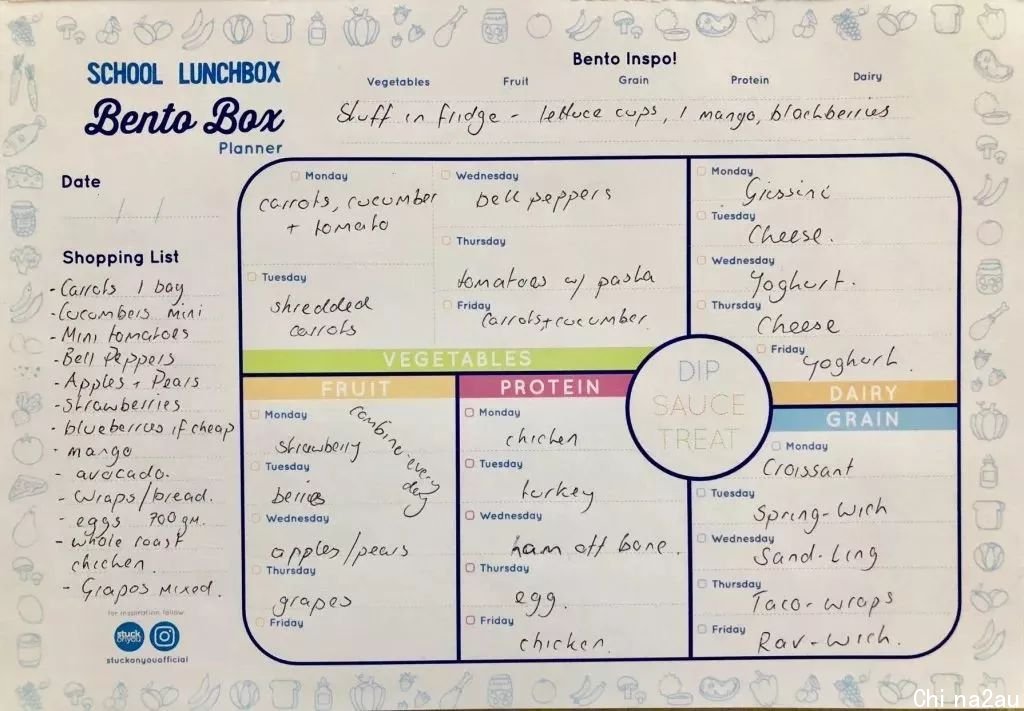 SCHOOL LUNCHBOX
Bento Box
Planner
Bento Inspo!
Vegetables Fruit Grain Protein Dairy
Stuff in fridge - lettuce cups, 1 mango, blackberries
Date
/ /
Shopping List
- Carrots 1 bag
- Cucumbers mini
- Mini tomatoes
- Bell Peppers
- Apples + Pears
- Strawberries
- blueberries if cheap
- mango
- avocado.
- Wraps/bread.
- eggs 700 gm.
- whole roast
chicken.
- Grapes mixed.
for inspiration follow
stuck
onyou
stuckonyouofficial
Monday
carrots, cucumber
+ tomato
Tuesday
shredded
carrots
Wednesday
bell peppers
Thursday
tomatoes w/ pasta
Friday
Carrots + cucumber.
VEGETABLES
Monday
Grissini
Tuesday
Cheese.
Wednesday
Yoghurt.
Thursday
Cheese
Friday
yoghurt.
DAIRY
FRUIT
Monday
strawberry
Tuesday
berries
Wednesday
apples/pears
Thursday
grapes
Friday
combine-every
day
PROTEIN
Monday
chicken
Tuesday
turkey
Wednesday
ham off bone.
Thursday
egg.
Friday
chicken.
DIP
SAUCE
TREAT
GRAIN
Monday
Croissant
Tuesday
Spring-wich
Wednesday
Sand-ling
Thursday
Taco-wraps
Friday
Rav-wich.
China2au